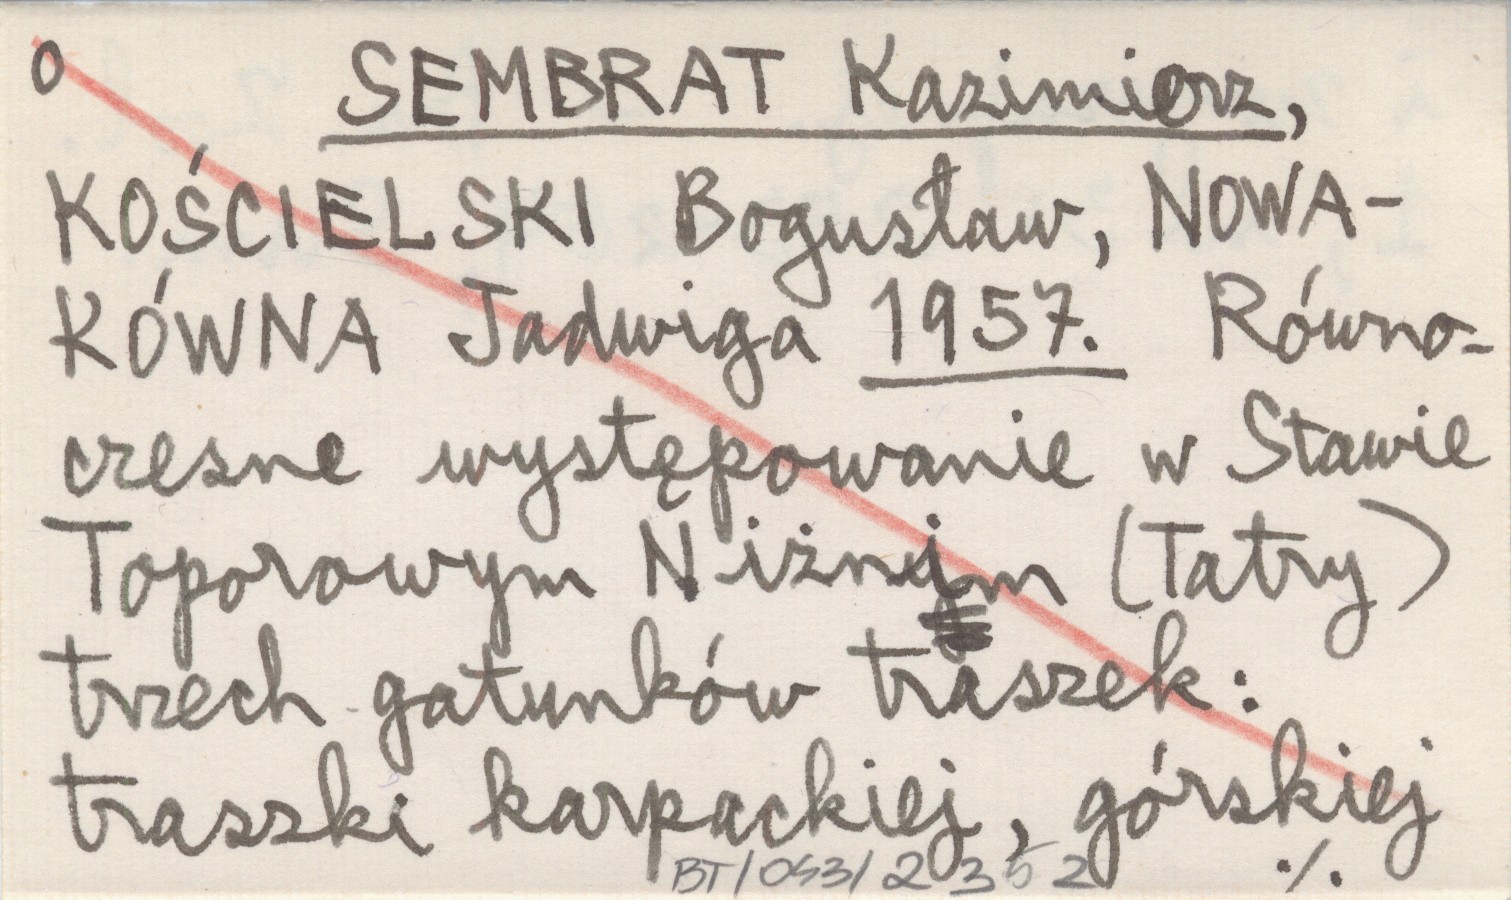 O SEMBRAT Kazimierz,
KOŚCIELSKI Bogusław, NOWA-
KÓWNA Jadwiga 1957. Równo-
czesne występowanie w Stawie
Toporowym Niżnim (Tatry)
trzech gatunków traszek:
traszki karpackiej, górskiej
BT/043/2352 ./.